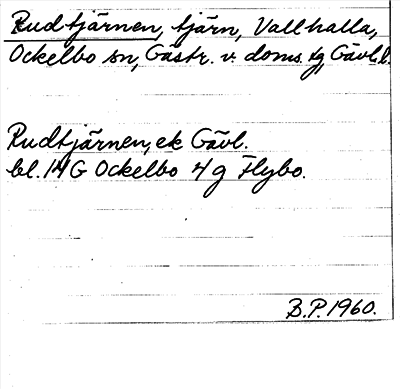 Rudtjärnen, tjärn, Vallhalla,
Ockelbo sn, Gästr. v. doms. tg, Gävl. l.
Rudtjärnen, ek Gävl.
bl. 14 G Ockelbo 4 g Flybo.
B.P. 1960.